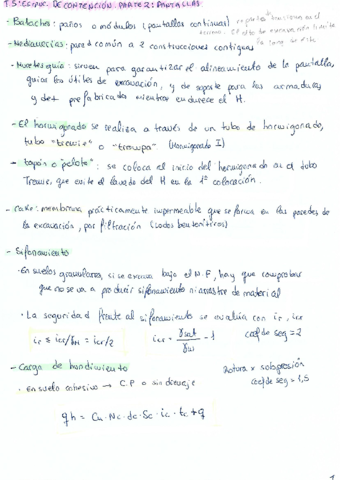 T.5: ESTRUC. DE CONTENCIÓN. PARTE 2: PANTALLAS
- Bataches: paños o módulos (pantallas continuas)
- Medianerias: pared común a 2 construcciones contiguas
- Muretes guia: sirven para garantizar el alineamiento de la pantalla,
guiar los útiles de excavación, y de soporte para las armaduras
y del prefabricado mientras endurece el H.
- El hormigonado se realiza a través de un tubo de hormigonado,
tubo "tremie" o "trompa" (Hormigonado I)
- tapón o "pelota": se coloca al inicio del hormigonado en el tubo
Tremie que evite el lavado del H en la 1ª colocación.
- cake: membrana prácticamente impermeable que se forma en las paredes de
la excavación, por filtración (lodos bentoníticos)
- Sifonamiento
· En suelos granulares, si se excava bajo el N.F, hay que comprobar
que no se va a producir sifonamiento ni arrastre de material
· La seguridad frente al sifonamiento se evalúa con ir, icr
ir ≤ icr/γM = icr/2 icr = γsat/γw - 1 coef de seg = 2
- Carga de hundimiento
Rotura x sobrepresión
coef de seg = 1,5
· En suelo cohesivo → C.P o sin drenaje
qh = Cu · Nc · dc · Sc · ic · tc + q
1